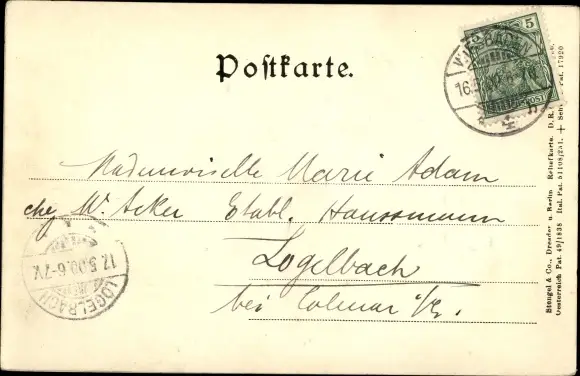 Postkarte.
5
WIESBADEN
16.5
Mademoiselle Marie Adam
chez Mr. Acker Etabl. Haussmann
Logelbach
bei Colmar i/E.
17.5.00.6-7V.
LOGELBACH
Stengel & Co., Dresden u. Berlin Reliefkarte. D. R.
Oesterreich Pat. 49/1838 Ital. Pat. 51108/251. + Pat. 17920